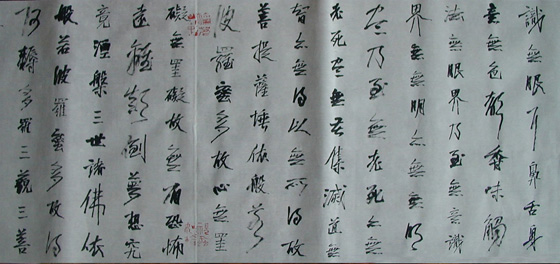 識無眼耳鼻舌身
意無色聲香味觸
法無眼界乃至無意識
界無無明亦無無明
盡乃至無老死亦無
老死盡無苦集滅道無
智亦無得以無所得故
菩提薩埵依般若
波羅蜜多故心無罣
礙無罣礙故無有恐怖
遠離顛倒夢想究
竟涅槃三世諸佛依
般若波羅蜜多故得
阿耨多羅三藐三菩